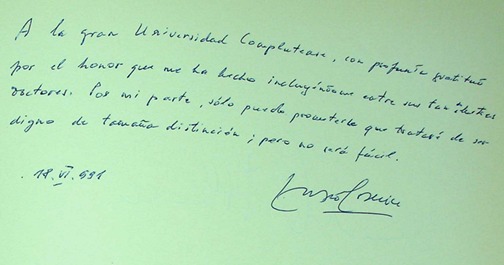 A la gran Universidad Complutense, con profunda gratitud
por el honor que me ha hecho incluyéndome entre sus tan ilustres
doctores. Por mi parte, sólo puedo prometerle que trataré de ser
digno de tamaña distinción; pero no será fácil.
18.VI.991